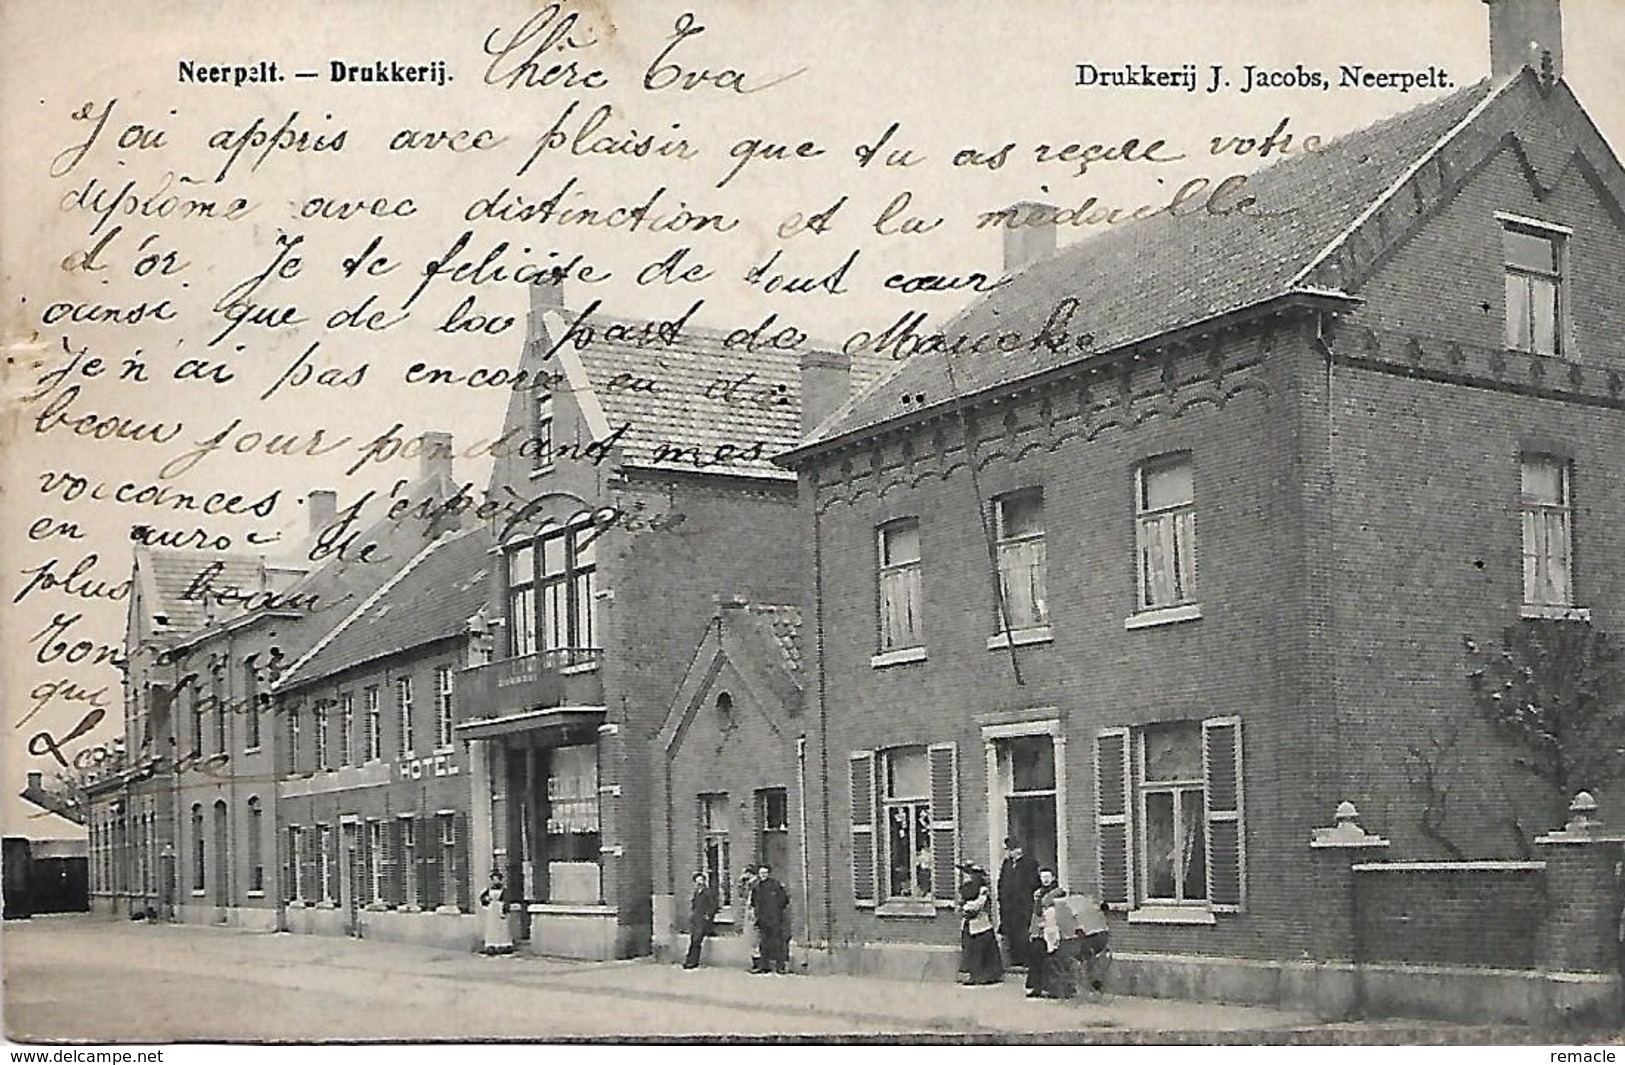 Neerpelt. — Drukkerij.
Chère Eva
Drukkerij J. Jacobs, Neerpelt.
J'ai appris avec plaisir que tu as reçue votre
diplôme avec distinction et la médaille
d'or. Je te felicite de tout cœur
ainsi que de la part de
Je n'ai pas encore eu de
beau jour pendant mes
vacances. J'espère que
en aura de
plus beau
Ton amie
qui t'aime
Louise
HOTEL
www.delcampe.net
remacle